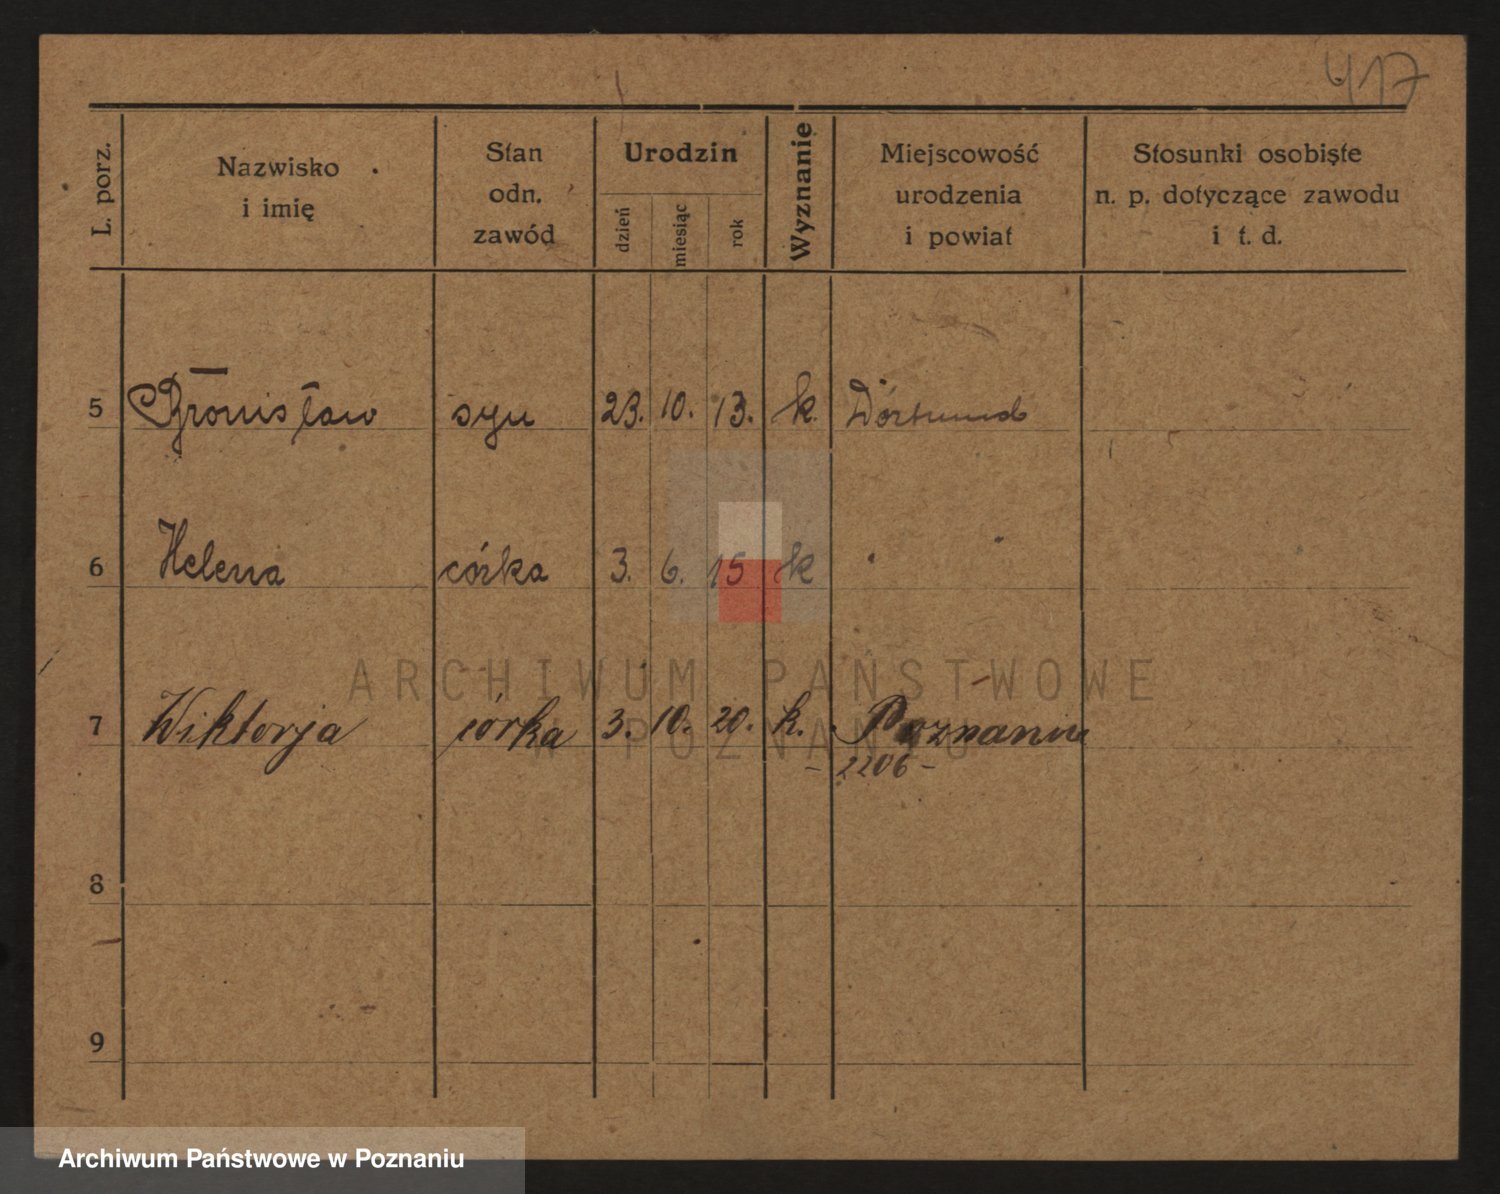 417
L. porz.
Nazwisko
i imię
Stan
odn.
zawód
Urodzin
dzień
miesiąc
rok
Wyznanie
Miejscowość
urodzenia
i powiat
Stosunki osobiste
n. p. dotyczące zawodu
i t. d.
5 Bronisław syn 23. 10. 13. k. Dortmund
6 Helena córka 3. 6. 15 k " "
ARCHIWUM PAŃSTWOWE
W POZNANIU
7 Wiktorja córka 3. 10. 20. k. Poznaniu
- 2206 -
8
9
Archiwum Państwowe w Poznaniu